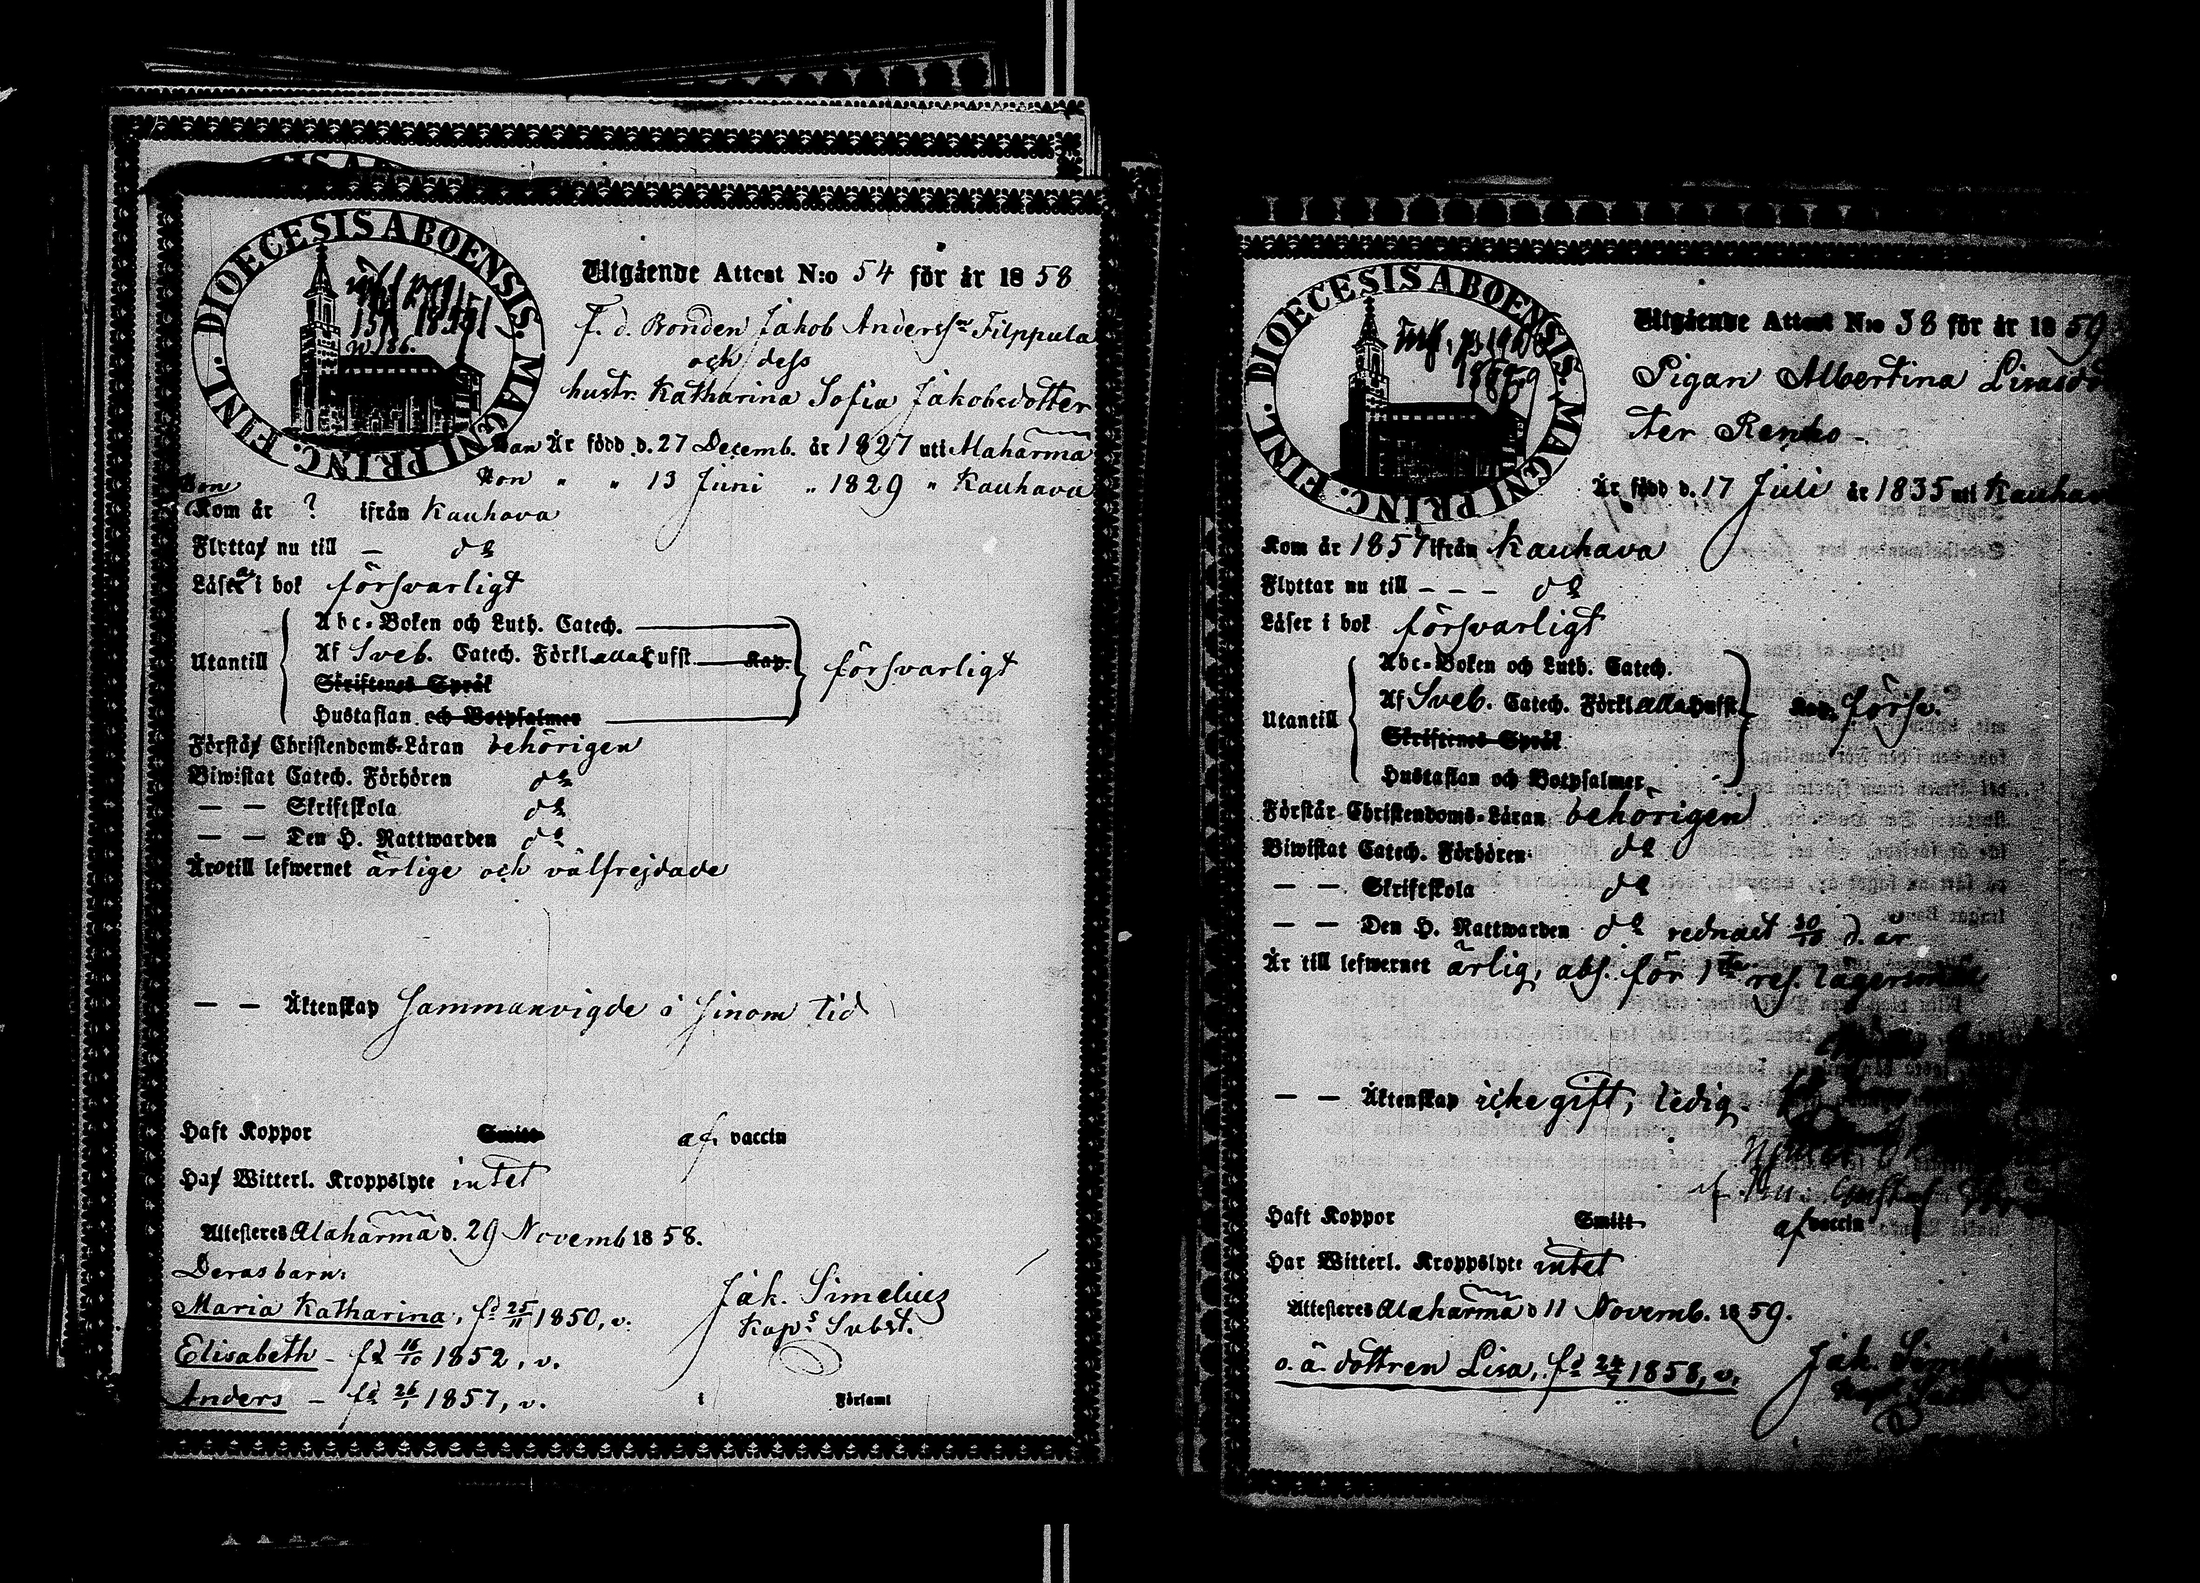 DIOECESIS ABOENSIS. MAGNI PRINC. FINL.
Utgående Attest N:o 54 för år 1858
F. d. Bonden Jakob Anderss:n Filppula
och dess
hustr. Katharina Sofia Jakobsdotter
Han Är född d. 27 Decemb. år 1827 uti Alaharma
Hon " " 13 Juni " 1829 " Kauhava
Hon
Kom år ? ifrån Kauhava
Flyttar nu till — do
Läser i bok försvarligt
Utantill
Abc-Boken och Luth. Catech.
Af Sveb. Catech. Förkl. alla Hufst. Kap.
försvarligt
Skriftenes Språk
Hustaflan och Botpsalmer
Förstår Christendoms-Läran behörigen
Biwistat Catech. Förhören do
— — Skriftskola do
— — Den H. Nattwarden do
Äro till lefwernet ärlige och välfrejdade
— — Äktenskap sammanvigde i sinom tid
Haft Koppor Smitt af vaccin
Har Witterl. Kroppslyte intet
Attesteres Alaharma d. 29 Novemb 1858.
Deras barn:
Maria Katharina, fd 25/11 1850, v.
Elisabeth - fd 16/10 1852, v.
Anders - fd 26/1 1857, v.
Jak. Simelius
Kap:s Subst.
i Församl
DIOECESIS ABOENSIS. MAGNI PRINC. FINL.
Utgående Attest N:o 38 för år 1859
Pigan Albertina Lisasdot
ter Renko -
Är född d. 17 Juli år 1835 uti Kauhava
Kom år 1857 ifrån Kauhava
Flyttar nu till - - - do
Läser i bok försvarligt
Utantill
Abc-Boken och Luth. Catech.
Af Sveb. Catech. Förkl. alla Hufst.
Kap. försv.
Skriftenes Språk
Hustaflan och Botpsalmer
Förstår Christendoms-Läran behörigen
Biwistat Catech. Förhören do
— — Skriftskola do
— — Den H. Nattwarden do 30/10 d. år
Är till lefwernet ärlig, abs. för 1sta res. lägersmål
— — Äktenskap icke gift, ledig.
Haft Koppor Smitt af vaccin
Har Witterl. Kroppslyte intet
Attesteres Alaharma d 11 Novemb. 1859.
o. ä. dottren Lisa, fd 1858, v.
Jak. Simelius